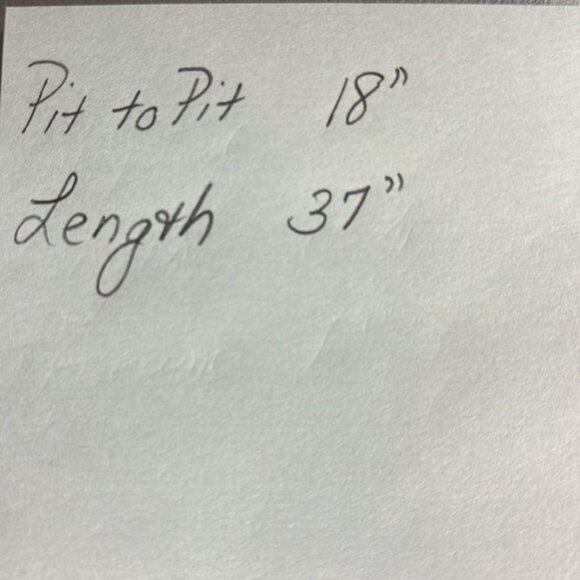 Pit to Pit 18"
Length 37"